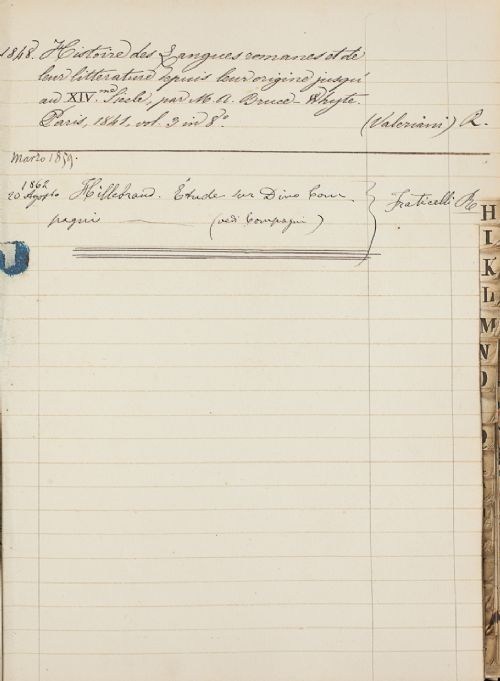 1848. Histoire des Langues romanes et de
leur litterature depuis leur origine jusqu'
au XIV.me Siecle, par M. A. Bruce-Whyte.
Paris, 1841, vol. 3 in 8.° (Valeriani) R.
Marzo 1859.
1862
20 Agosto Hillebrand. Étude sur Dino Com-
pagni (vedi Compagni) Fraticelli R
H
I
K
L
M
N
O